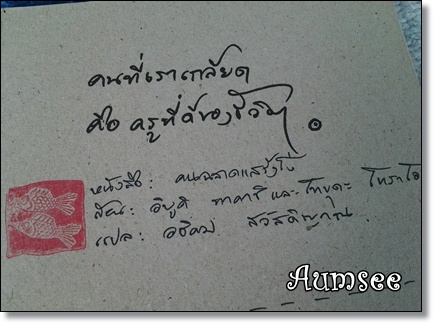 คนที่เราเกลียด
คือ ครูที่ดีของชีวิต
หนังสือ : คนฉลาดแสร้งโง่
เขียน : อิบูกิ ทาคาชิ และ โทบุดะ โทราโอ
แปล : อธิคม สวัสดิญาณ
Aumsee